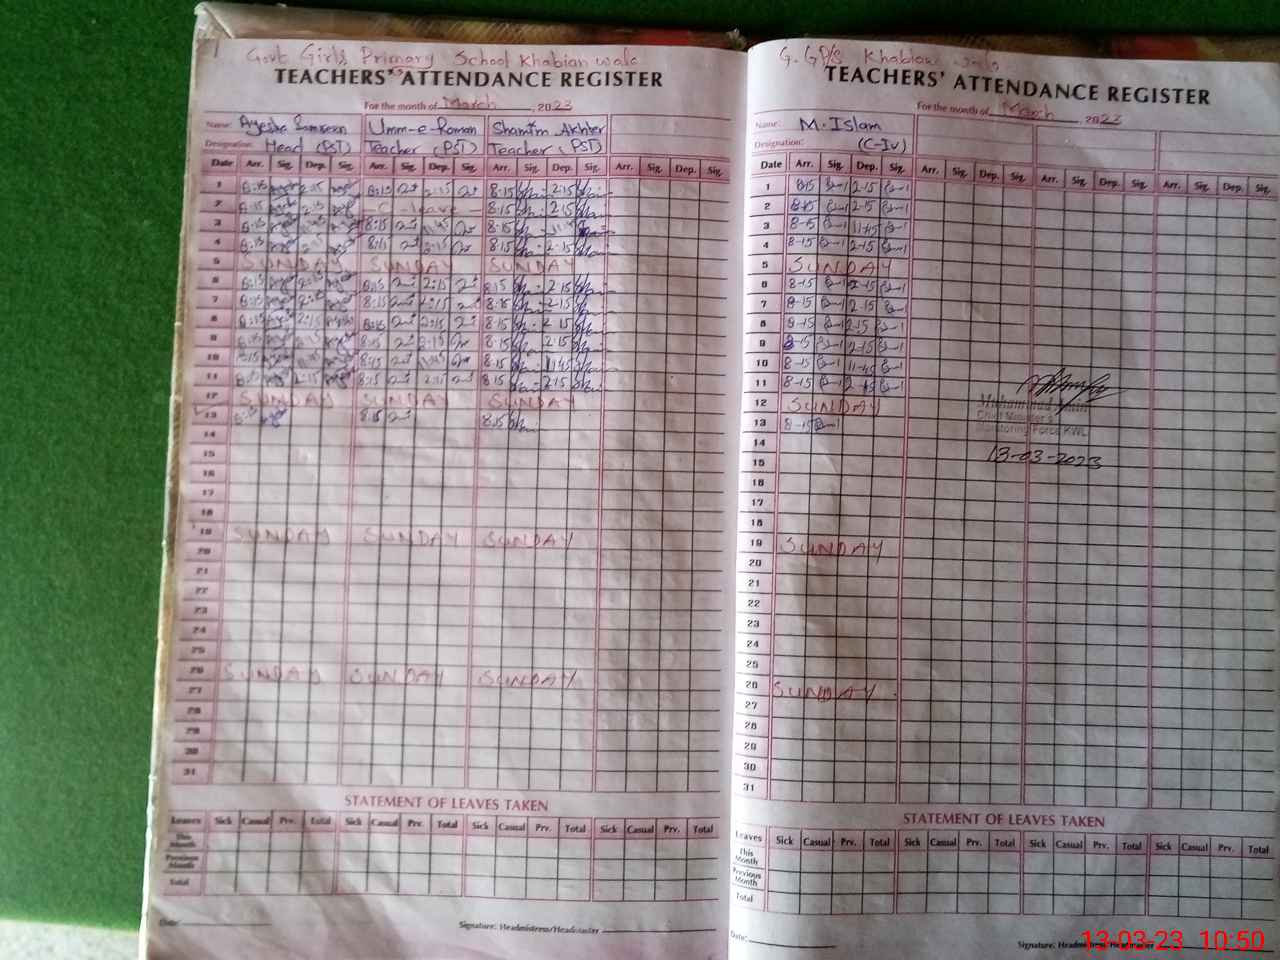 Govt Girls Primary School Khabian wala
TEACHERS' ATTENDANCE REGISTER
For the month of March, 2023
Name: Ayesha Umm-e-Roman Shamim Akhter
Designation: Head (PST) Teacher (PST) Teacher (PST)
Date Arr. Sig. Dep. Sig. Arr. Sig. Dep. Sig. Arr. Sig. Dep. Sig. Arr. Sig. Dep. Sig.
1 8:15 2:15 8:15 2:15 8:15 2:15
2 8:15 2:15 C-leave 8:15 2:15
3 8:15 11:45 8:15 11:45 8:15 11:45
4 8:15 2:15 8:15 2:15 8:15 2:15
5 SUNDAY SUNDAY SUNDAY
6 8:15 2:15 8:15 2:15 8:15 2:15
7 8:15 2:15 8:15 2:15 8:15 2:15
8 8:15 2:15 8:15 2:15 8:15 2:15
9 8:15 2:15 8:15 2:15 8:15 2:15
10 8:15 11:45 8:15 11:45 8:15 11:45
11 8:15 2:15 8:15 2:15 8:15 2:15
12 SUNDAY SUNDAY SUNDAY
13 8:15 8:15 8:15
14
15
16
17
18
19 SUNDAY SUNDAY SUNDAY
20
21
22
23
24
25
26 SUNDAY SUNDAY SUNDAY
27
28
29
30
31
STATEMENT OF LEAVES TAKEN
Leaves Sick Casual Prv. Total Sick Casual Prv. Total Sick Casual Prv. Total Sick Casual Prv. Total
This Month
Previous Month
Total
Date:
Signature: Headmistress/Headmaster
G. GP/S Khabian wala
TEACHERS' ATTENDANCE REGISTER
For the month of March 2023
Name: M. Islam
Designation: (C-Iv)
Date Arr. Sig. Dep. Sig. Arr. Sig. Dep. Sig. Arr. Sig. Dep. Sig. Arr. Sig.
1 8-15 2-15
2 8-15 2-15
3 8-15 11-45
4 8-15 2-15
5 SUNDAY
6 8-15 2-15
7 8-15 2-15
8 8-15 2-15
9 8-15 2-15
10 8-15 11-45
11 8-15 2-15
12 SUNDAY
13 8-15
Chief Minister's
Monitoring Force KWL
13-03-2023
14
15
16
17
18
19 SUNDAY
20
21
22
23
24
25
26 SUNDAY
27
28
29
30
31
STATEMENT OF LEAVES TAKEN
Leaves Sick Casual Prv. Total Sick Casual Prv. Total Sick Casual Prv. Total Sick Casual Prv. Total
This Month
Previous Month
Total
Date:
Signature: Headmistress/Headmaster
13-03-23 10:50